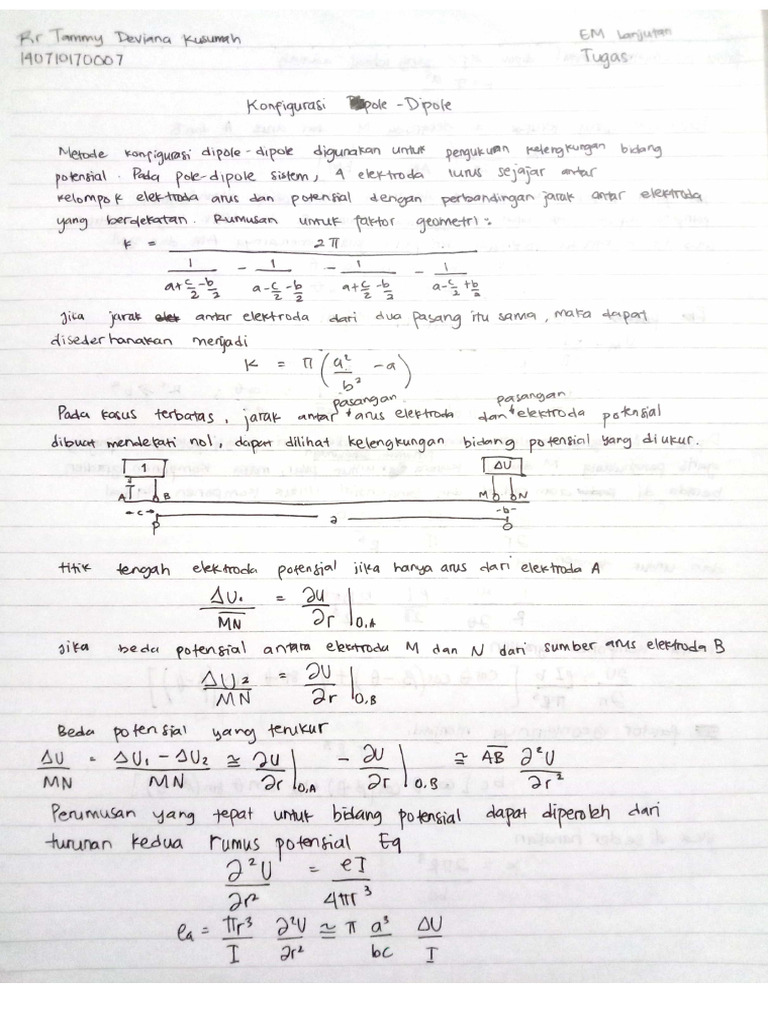 Rr Tammy Deviana Kusumah
EM Lanjutan
140710170007
Tugas
Konfigurasi pole - Dipole
Metode konfigurasi dipole-dipole digunakan untuk pengukuran kelengkungan bidang
potensial. Pada pole-dipole sistem, 4 elektroda lurus sejajar antar
kelompok elektroda arus dan potensial dengan perbandingan jarak antar elektroda
yang berdekatan. Rumusan untuk faktor geometri:
K = 2π / (1/(a+c/2-b/2) - 1/(a-c/2-b/2) - 1/(a+c/2-b/2) - 1/(a-c/2+b/2))
Jika jarak antar elektroda dari dua pasang itu sama, maka dapat
disederhanakan menjadi
K = π (a²/b² - a)
Pada kasus terbatas, jarak antar pasangan arus elektroda dan pasangan elektroda potensial
dibuat mendekati nol, dapat dilihat kelengkungan bidang potensial yang diukur.
I ΔU
A B M N
c b
a
P O
titik tengah elektroda potensial jika hanya arus dari elektroda A
ΔU₁/MN = ∂U/∂r |O,A
Jika beda potensial antara elektroda M dan N dari sumber arus elektroda B
ΔU2/MN = ∂U/∂r |O,B
Beda potensial yang terukur
ΔU/MN = ΔU₁ - ΔU₂/MN ≅ ∂U/∂r |O,A - ∂U/∂r |O,B ≅ AB ∂²U/∂r²
Perumusan yang tepat untuk bidang potensial dapat diperoleh dari
turunan kedua rumus potensial Eq
∂²U/∂r² = ρI/4πr³
ρa = πr³/I ∂²U/∂r² ≅ π a³/bc ΔU/I